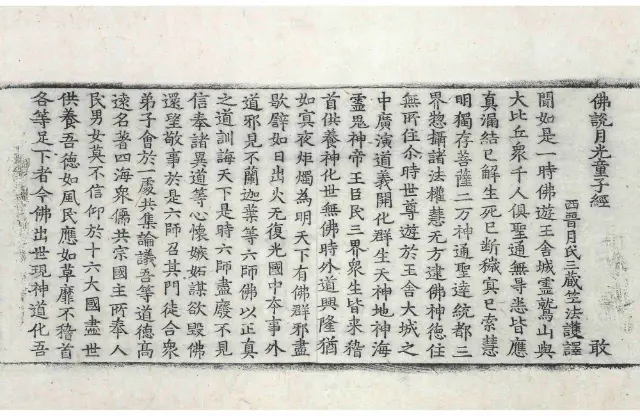 佛說月光童子經 敢
西晉月氏三藏竺法護譯
聞如是一時佛遊王舍城靈鷲山與
大比丘衆千人俱聖通無㝵悉皆應
真漏結已解生死已断穢㝠已索慧
明獨存菩薩二万神通聖達統都三
界惣攝諸法權慧无方逮佛神德住
無所住尒時世尊遊於王舍大城之
中廣演道義開化群生天神地神海
靈鬼神帝王臣民三界衆生皆来稽
首供養神化世無佛時外道興隆猶
如㝠夜炬燭為明天下有佛群邪盡
歇譬如日出火无復光國中本事外
道邪見不蘭迦葉等六師佛以正真
之道訓誨天下是時六師盡廢不見
信奉諸異道等心懷嫉妬謀欲毀佛
還望敬事於是六師召其門徒合衆
弟子會於一處共集論議吾等道德高
遠名著四海衆儒共宗國主所奉人
民男女莫不信仰於十六大國盡世
供養吾德如風民應如草靡不稽首
各等足下者今佛出世現神道化吾